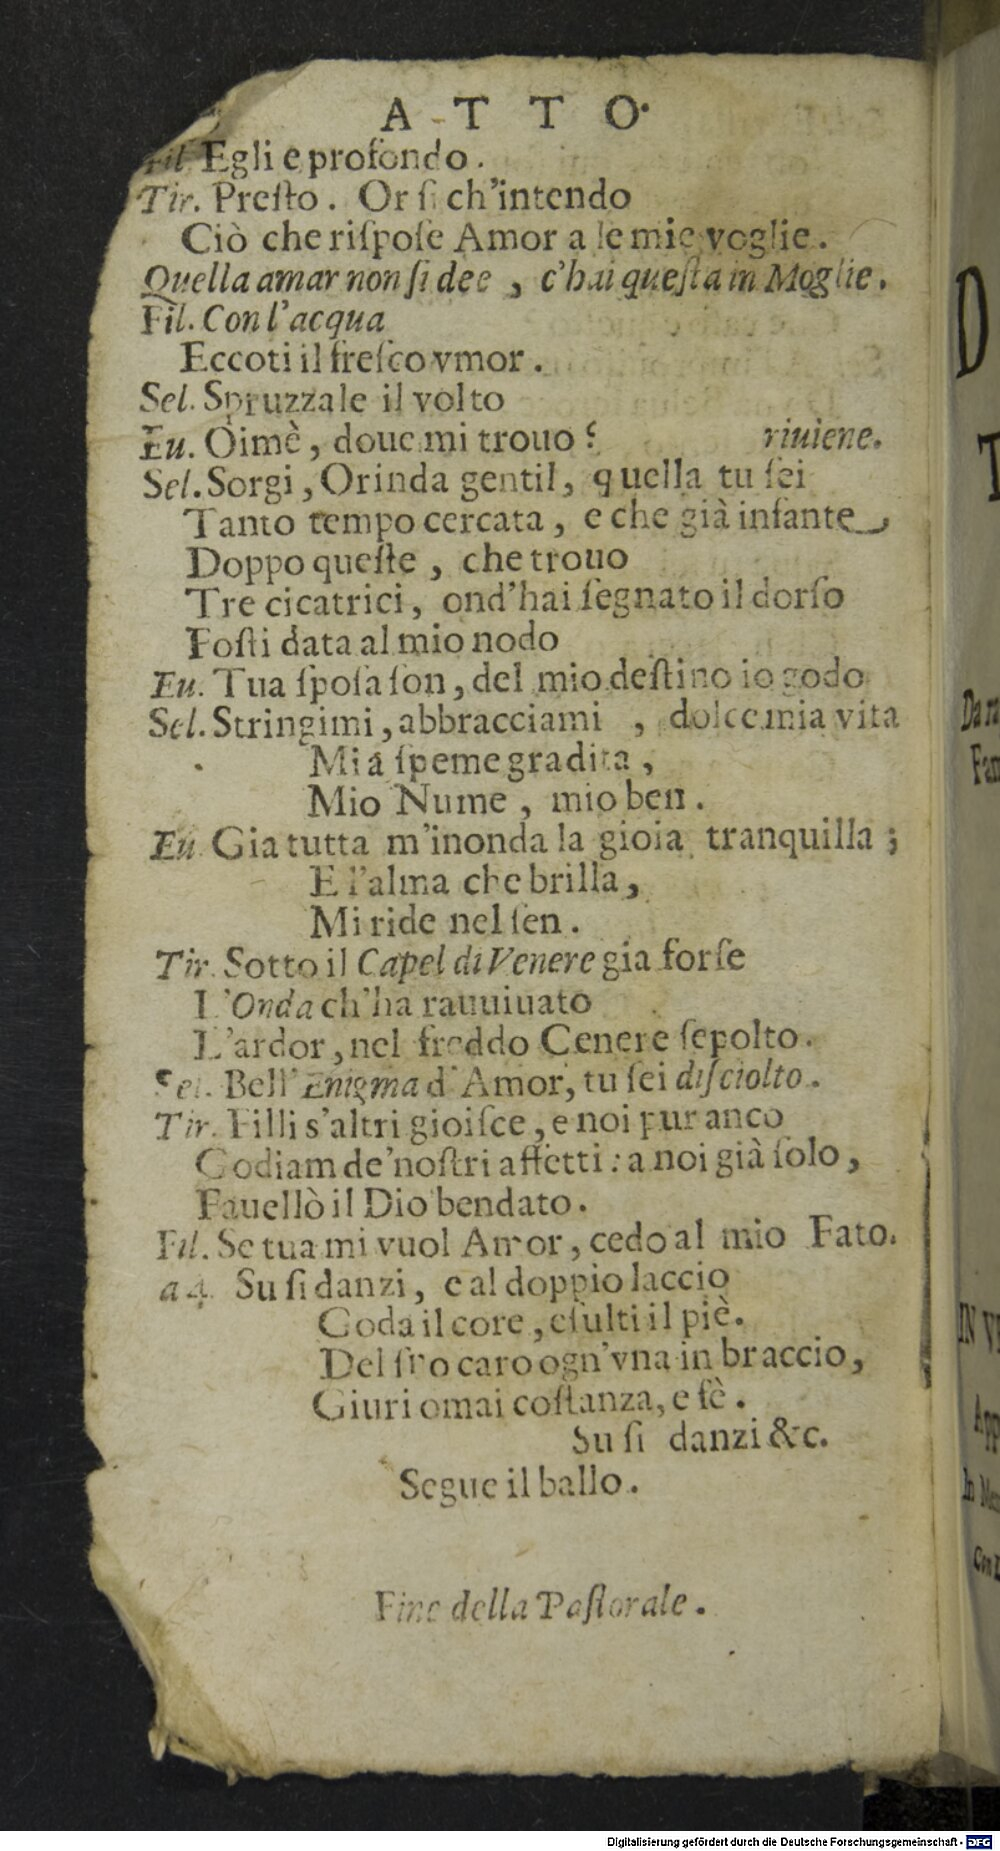 ATTO.
Fil. Egli e profondo.
Tir. Preſto. Or ſi ch'intendo
Ciò che riſpoſe Amor a le mie voglie.
Quella amar non ſi dee, c'hai queſta in Moglie.
Fil. Con l'acqua
Eccoti il freſco vmor.
Sel. Spruzzale il volto
Eu. Oimè, doue mi trouo? riuiene.
Sel. Sorgi, Orinda gentil, quella tu ſei
Tanto tempo cercata, e che già infante,
Doppo queſte, che trouo
Tre cicatrici, ond'hai ſegnato il dorſo
Foſti data al mio nodo
Eu. Tua ſpoſa ſon, del mio deſtino io godo
Sel. Stringimi, abbracciami, dolce mia vita
Mia ſpeme gradita,
Mio Nume, mio ben.
Eu. Gia tutta m'inonda la gioia tranquilla;
E l'alma che brilla,
Mi ride nel ſen.
Tir. Sotto il Capel di Venere gia forſe
L'Onda ch'ha rauuiuato
L'ardor, nel freddo Cenere ſepolto.
Sel. Bell'Enigma d'Amor, tu ſei diſciolto.
Tir. Filli s'altri gioiſce, e noi pur anco
Godiam de'noſtri affetti: a noi già ſolo,
Fauellò il Dio bendato.
Fil. Se tua mi vuol Amor, cedo al mio Fato.
a 4. Su ſi danzi, e al doppio laccio
Goda il core, eſulti il piè.
Del ſuo caro ogn'vna in braccio,
Giuri omai coſtanza, e fè.
Su ſi danzi &c.
Segue il ballo.
Fine della Paſtorale.
D
T
Da
Fam
IN
App
In
Con
Digitalisierung gefördert durch die Deutsche Forschungsgemeinschaft - DFG